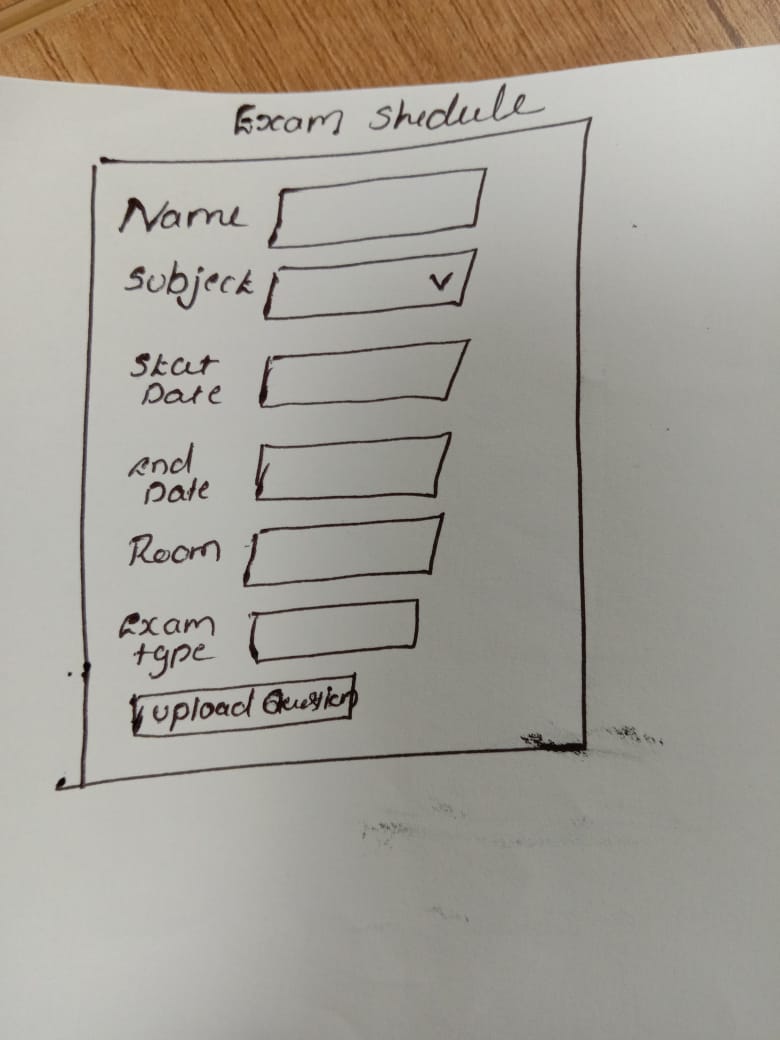 Exam Shedule
Name
Subject
Start
Date
End
Date
Room
Exam
type
upload Question